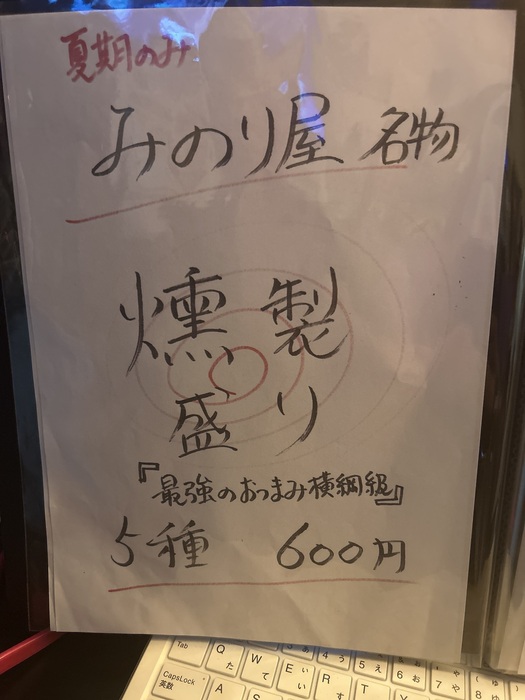 夏期のみ
みのり屋 名物
燻製
盛り
『最強のおつまみ横綱級』
5種 600円
Tab Q た W て E い ぃ 4 う 5 え 6 お 7 や 8 ゆ
CapsLock 英数 A S